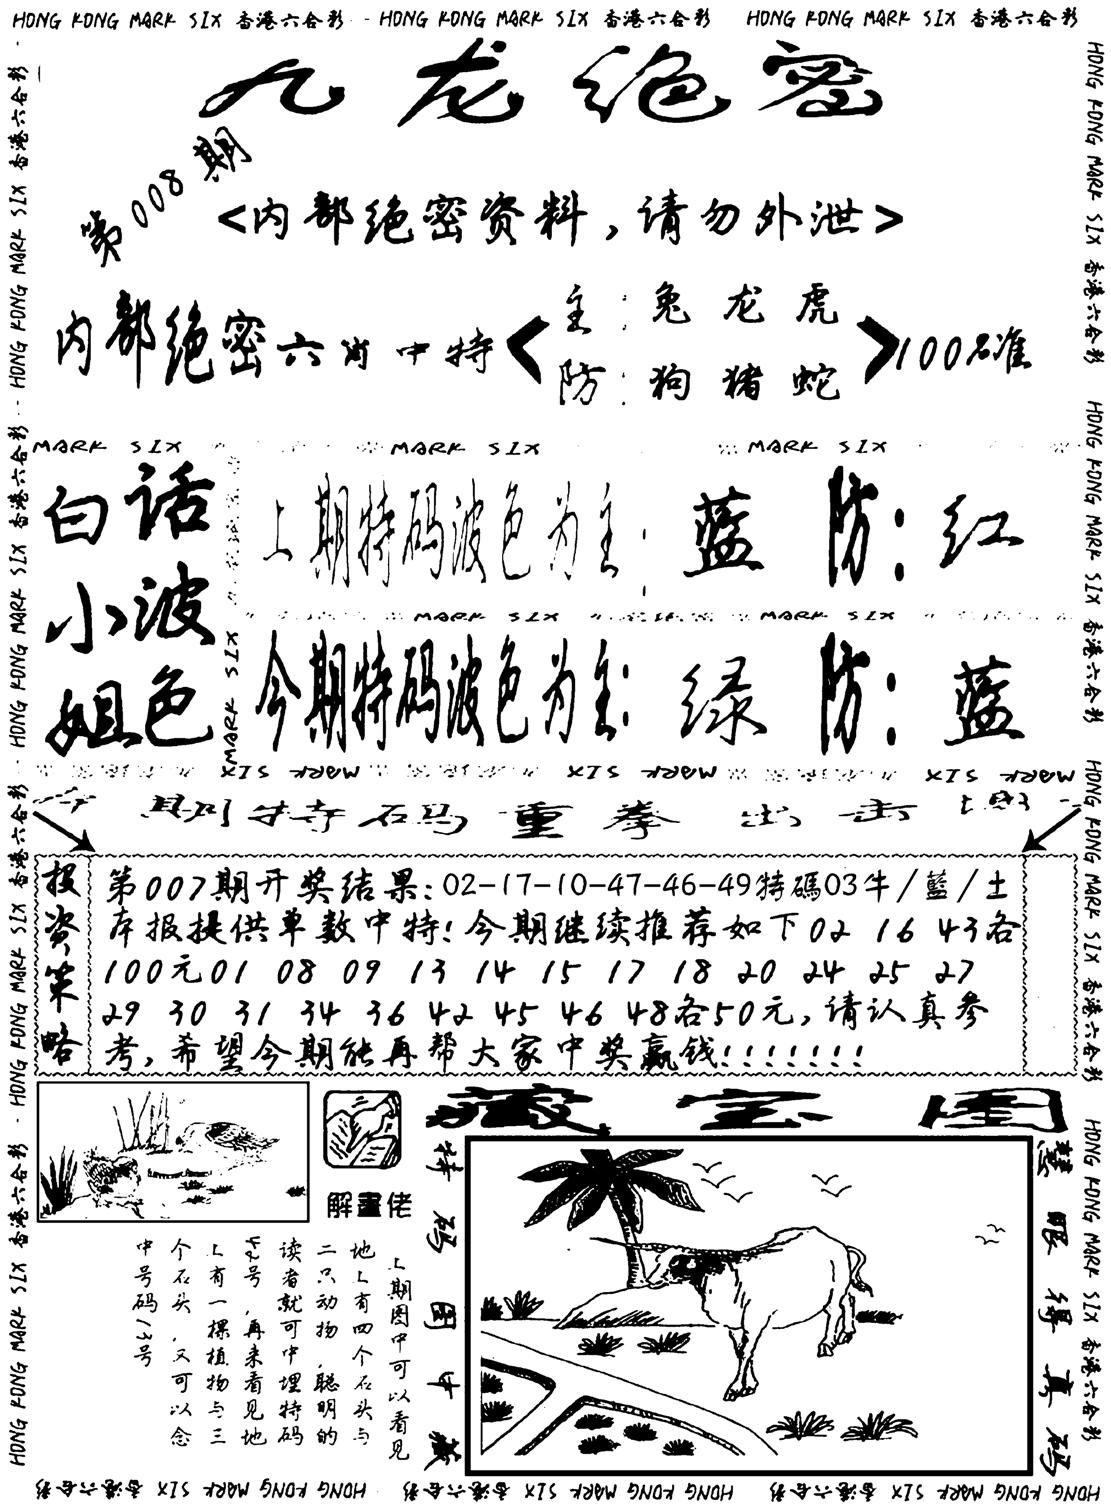 HONG KONG MARK SIX 香港六合彩 HONG KONG MARK SIX 香港六合彩 HONG KONG MARK SIX 香港六合彩
九龙绝密
第008期
<内部绝密资料,请勿外泄>
内部绝密六肖中特
主:兔龙虎
防:狗猪蛇
100%准
MARK SIX MARK SIX MARK SIX
白话
小波
姐色
上期特码波色为主:蓝 防:红
MARK SIX MARK SIX
今期特码波色为主:绿 防:蓝
MARK SIX
MARK SIX MARK SIX MARK SIX
期特码重拳出击
投资策略
第007期开奖结果:02-17-10-47-46-49特碼03牛/藍/土
本报提供单数中特!今期继续推荐如下02 16 43各
100元01 08 09 13 14 15 17 18 20 24 25 27
29 30 31 34 36 42 45 46 48各50元,请认真参
考,希望今期能再帮大家中奖赢钱!!!!!!!
藏宝图
解畫佬
特码图中藏
慧眼得真码
上期图中可以看见
地上有四个石头与
二只动物,聪明的
读者就可中埋特码
42号,再来看见地
上有一棵植物与三
个石头,又可以念
中号码13号
HONG KONG MARK SIX 香港六合彩 HONG KONG MARK SIX 香港六合彩 HONG KONG MARK SIX 香港六合彩
HONG KONG MARK SIX 香港六合彩 HONG KONG MARK SIX 香港六合彩 HONG KONG MARK SIX 香港六合彩 HONG KONG MARK SIX 香港六合彩
HONG KONG MARK SIX 香港六合彩 HONG KONG MARK SIX 香港六合彩 HONG KONG MARK SIX 香港六合彩 HONG KONG MARK SIX 香港六合彩